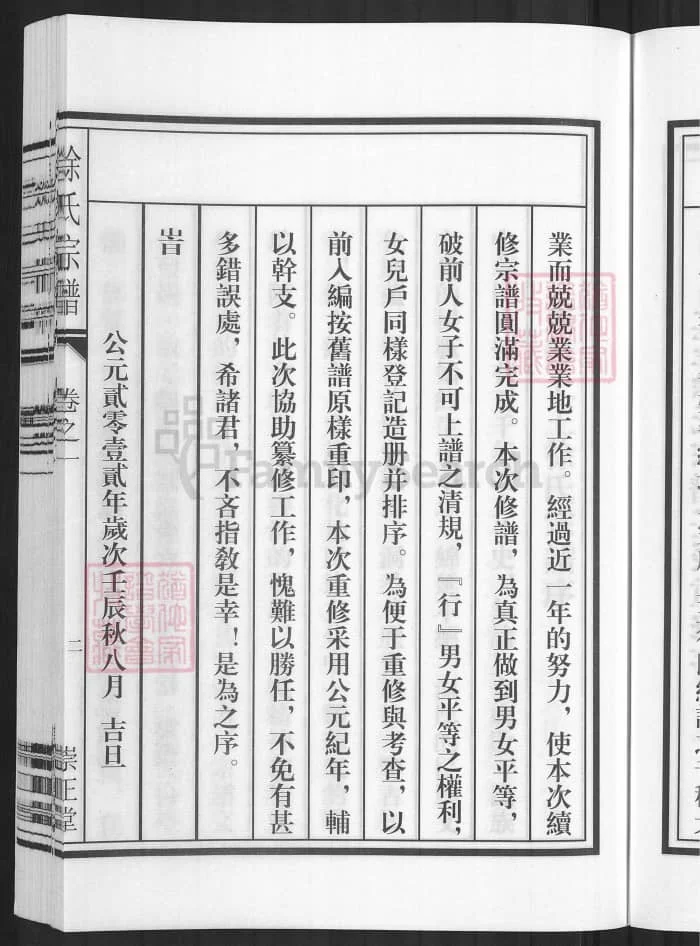 業而兢兢業業地工作。經過近一年的努力，使本次續
修宗譜圓滿完成。本次修譜，為真正做到男女平等，
破前人女子不可上譜之清規，『行』男女平等之權利，
女兒戶同樣登記造册并排序。為便于重修與考查，以
前入編按舊譜原樣重印，本次重修采用公元紀年，輔
以幹支。此次協助纂修工作，愧難以勝任，不免有甚
多錯誤處，希諸君，不吝指敎是幸！是為之序。
旹
公元貳零壹貳年歲次壬辰秋八月 吉旦
徐氏宗譜 卷之一 二 崇正堂
FamilySearch